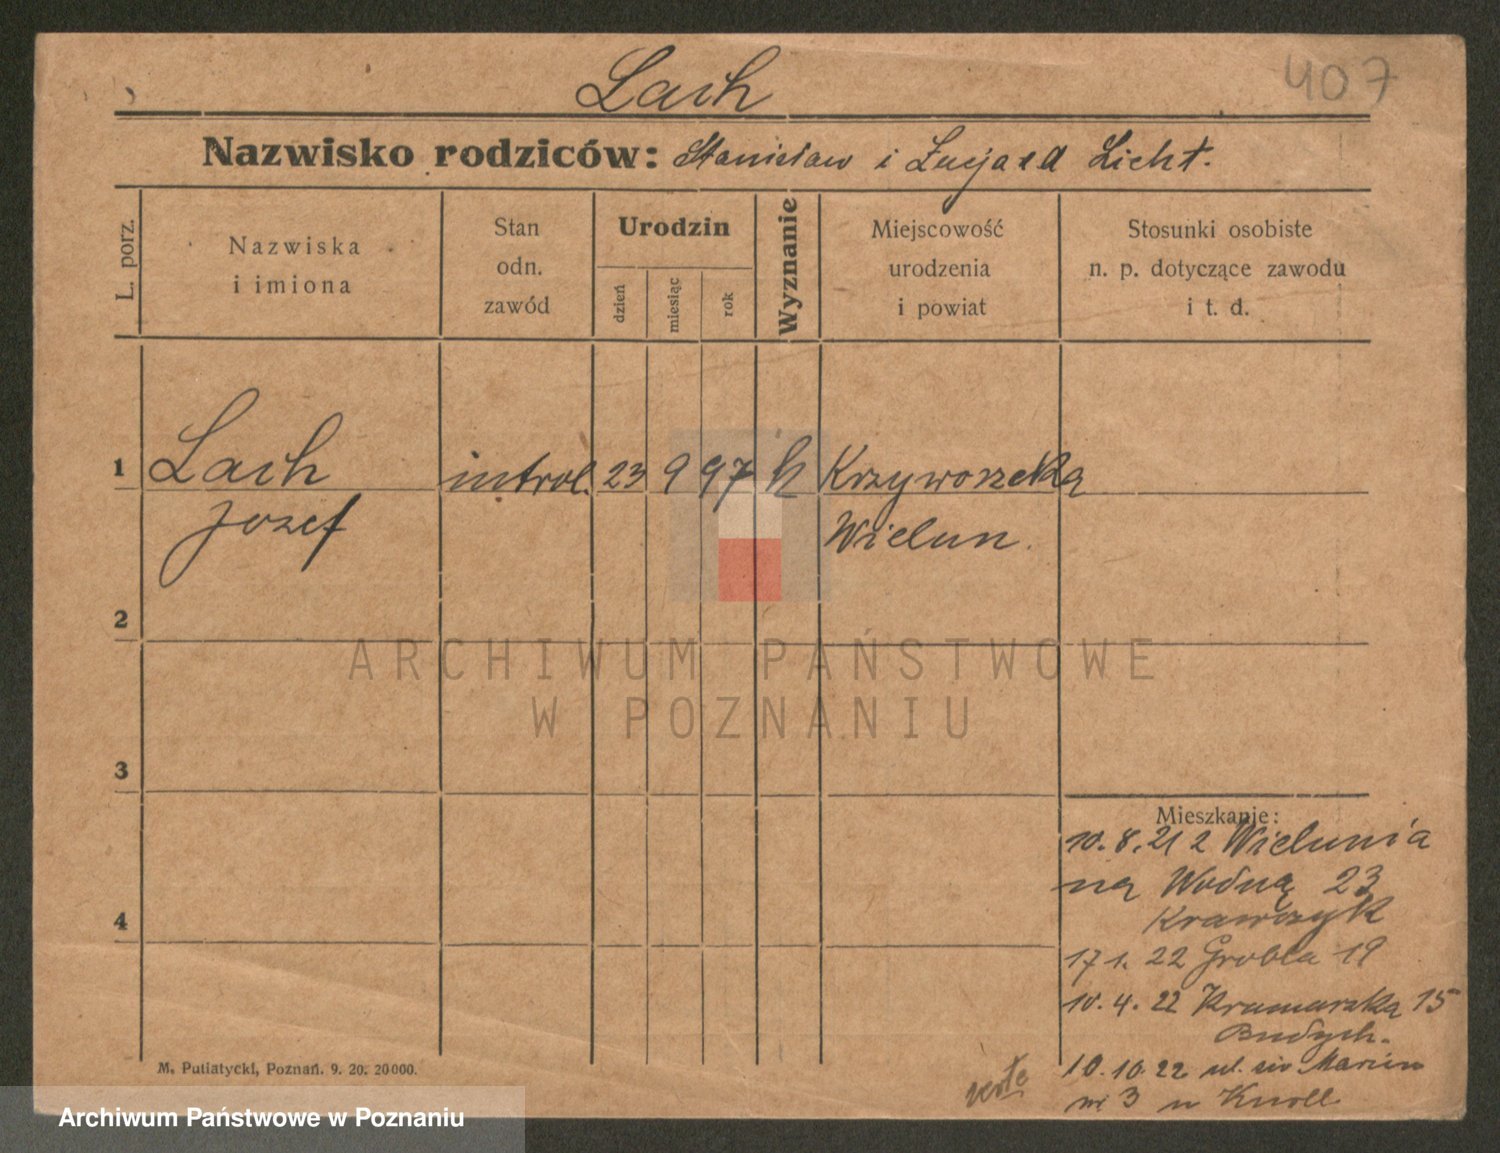 Lach
407
Nazwisko rodziców: Stanisław i Łucja z d Licht.
L. porz.
Nazwiska i imiona
Stan odn. zawód
Urodzin
dzień
miesiąc
rok
Wyznanie
Miejscowość urodzenia i powiat
Stosunki osobiste n. p. dotyczące zawodu i t. d.
1 Lach introl. 23 9 97 k Krzyworzeka
Jozef Wielun.
2
ARCHIWUM PAŃSTWOWE
W POZNANIU
3
Mieszkanie:
10.8.21 z Wielunia
na Wodną 23
Krawczyk
4
17 1. 22 Grobla 19
10.4.22 Kramarska 15
10.10.22 ul. św Marcin
nr 3 u Knoll
M. Putiatycki, Poznań. 9. 20. 20000.
Archiwum Państwowe w Poznaniu